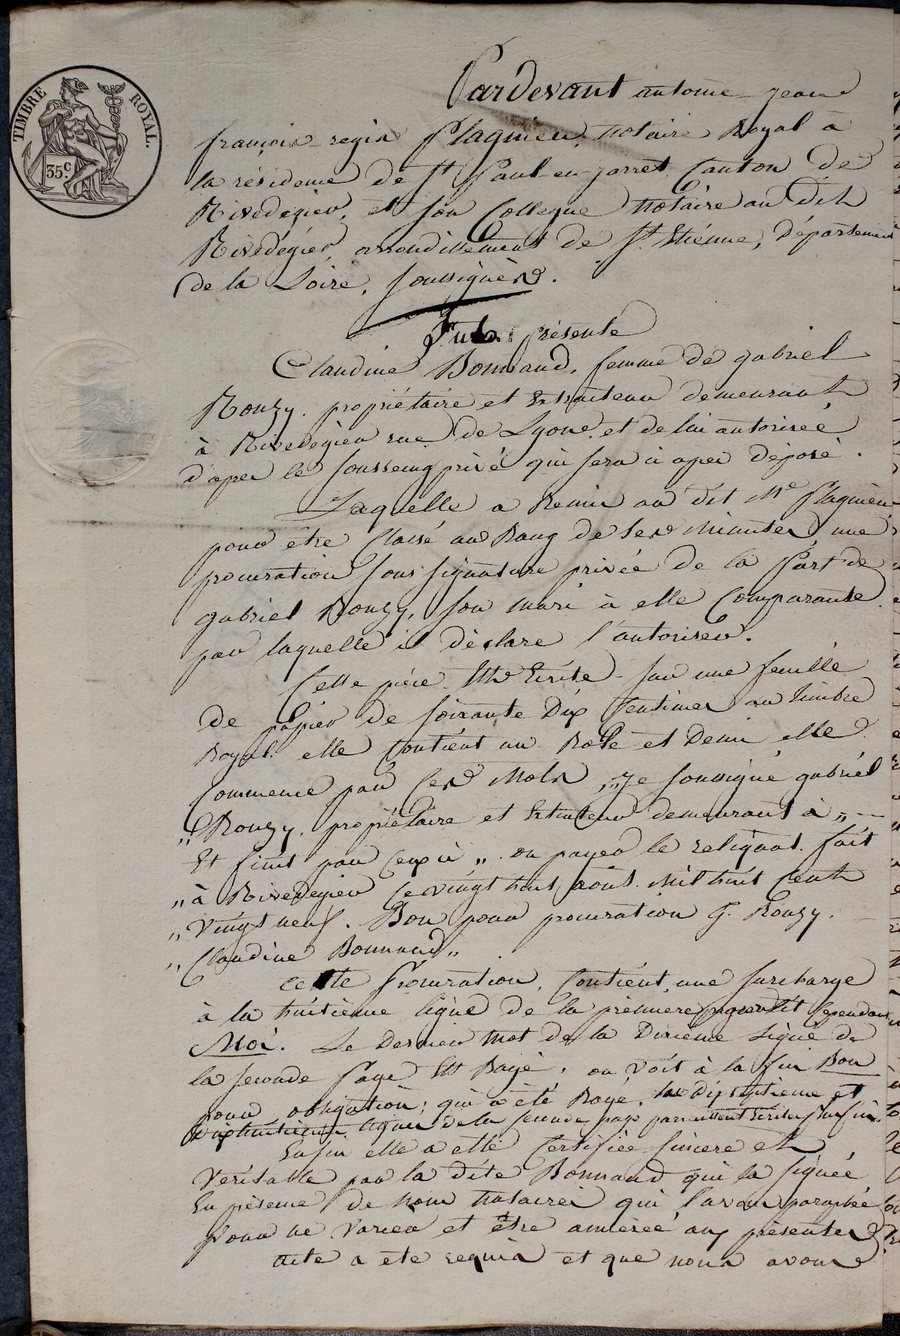 TIMBRE ROYAL.
35c
Pardevant antoine jean
françois regis Flagnieu, notaire Royal à
la résidence de St Paul en jarret Canton de
Rivedegier, et son Collegue notaire au dit
Rivedégier, arrondissement de St Etiénne, département
de la Loire, soussignés.
Fut présente
Claudine Bonnand, femme de gabriel
Rouzy, propriétaire et demeurant
à Rivedegier rue de Lyon, et de lui autorisée
d'aper le sousseing privé qui sera ci aper déposé.
Laquelle a Remis au dit Me flagnieu
pour etre Classé au Rang de Ses Minutes, une
procuration sous signature privée de la part de
gabriel Rouzy, son mari à elle Comparante
par laquelle il déclare l'autoriser.
Cette piéce Est Ecrite sur une feuille
de papier de soixante Dix Centimes au timbre
Royal. elle Contient un Role et Demi elle
Commence par Ces Mots „ Je soussigné gabriel
„ Rouzy, propriétaire et demeurant à „
Et finit par Ceux ci „ ou payer le reliquat. fait
„ à Rivedegier le vingt huit août Mil huit Cent
„ Vingt neuf. Bon pour procuration G. Rouzy.
„ Claudine Bonnand „
Cette Procuration, Contient, une surcharge
à la huitieme ligne de la premiere Cependant
Moi. Le Dernier Mot de la Dixieme Ligne de
la seconde Page Est Rayé. on voit à la fin Bon
pour obligation; qui a été Rayé, les Dixseptieme et
Dixhuitieme lignes de la seconde page
Enfin elle a etté Certifiée sincere et
Véritable par la dite Bonnand qui la signée
En présence de nous Notaires qui l'avons paraphée
pour ne varier et être annexée aux présentes
acte a été requis et que nous avons